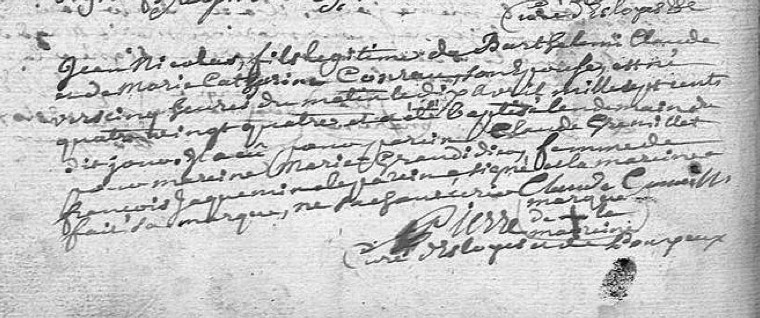 Curé d'Esloyes &
Jean Nicolas, fils legitime de Barthelemi Claude
et de Marie Catherine Conrau, son Epouse, est né
vers cinq heures du matin le dix avril mille sept cents
quatre vingt quatre et a été baptisé le lendemain du
dit jour. Il a eu pour parein Claude Grenillet
pour mareine Marie Grandidier, femme de
françois Jaquemin le parein a signé et la mareine a
fait sa marque, ne sachant écrire Claude
marque
Pierre de + la
mareine
Curé d'Esloyes et de Pourpeux